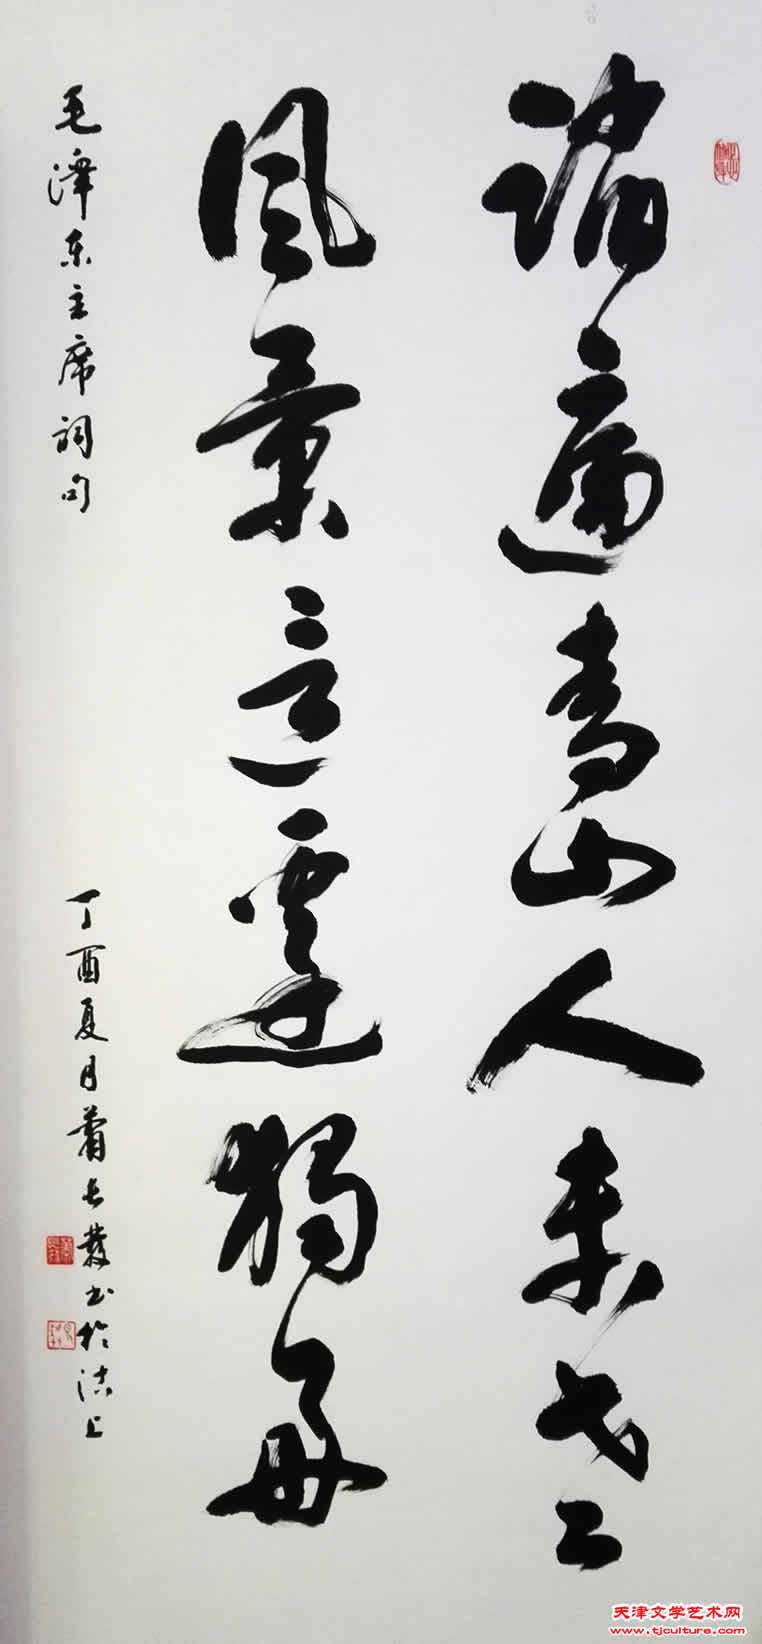 踏遍青山人未老
風景這邊獨好
毛澤东主席詞句
丁酉夏月蕭長發書於沽上
天津文学艺术网
www.tjculture.com